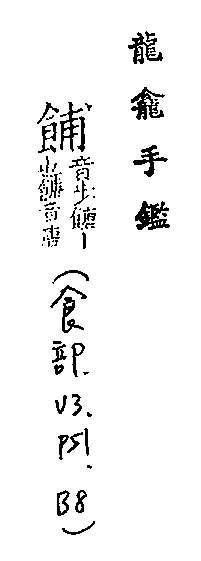 龍龕手鑑
餔
音步餹丨
(食部.V3.P51.B8)